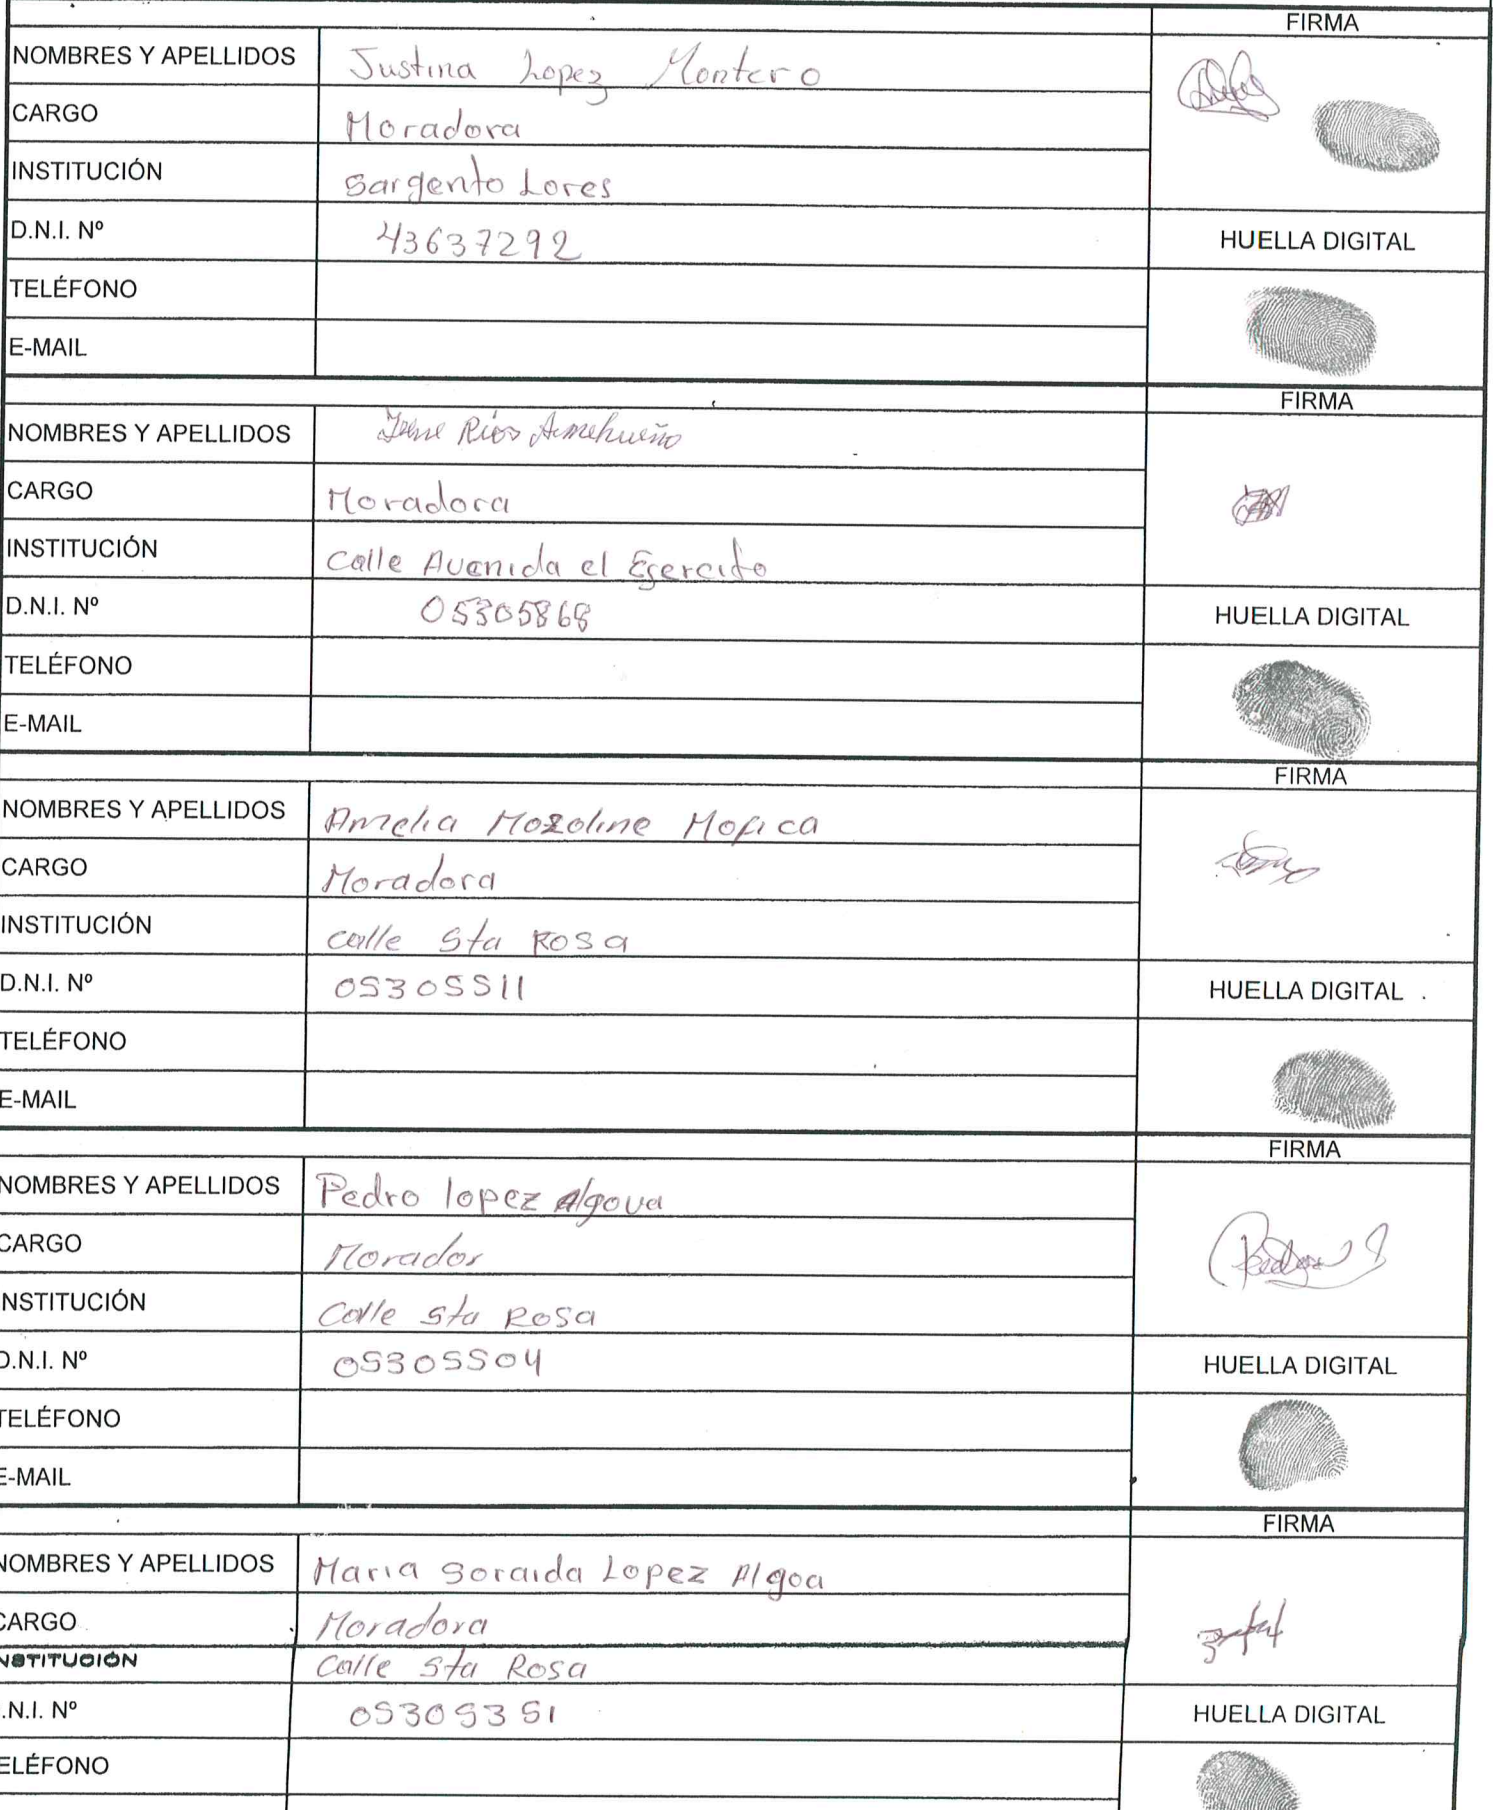 FIRMA
NOMBRES Y APELLIDOS Justina Lopez Montero
CARGO Moradora
INSTITUCIÓN Sargento Lores
D.N.I. Nº 43637292 HUELLA DIGITAL
TELÉFONO
E-MAIL
FIRMA
NOMBRES Y APELLIDOS Rios
CARGO Moradora
INSTITUCIÓN Calle Avenida el Egercito
D.N.I. Nº 05305868 HUELLA DIGITAL
TELÉFONO
E-MAIL
FIRMA
NOMBRES Y APELLIDOS Amelia Mozoline
CARGO Moradora
INSTITUCIÓN calle Sta Rosa
D.N.I. Nº 05305511 HUELLA DIGITAL
TELÉFONO
E-MAIL
FIRMA
NOMBRES Y APELLIDOS Pedro lopez Algova
CARGO Morador
NSTITUCIÓN Calle Sta Rosa
D.N.I. Nº 05305504 HUELLA DIGITAL
TELÉFONO
E-MAIL
FIRMA
NOMBRES Y APELLIDOS Maria Soraida Lopez Algoa
CARGO Moradora
NSTITUCIÓN Calle Sta Rosa
.N.I. Nº 05305351 HUELLA DIGITAL
ELÉFONO